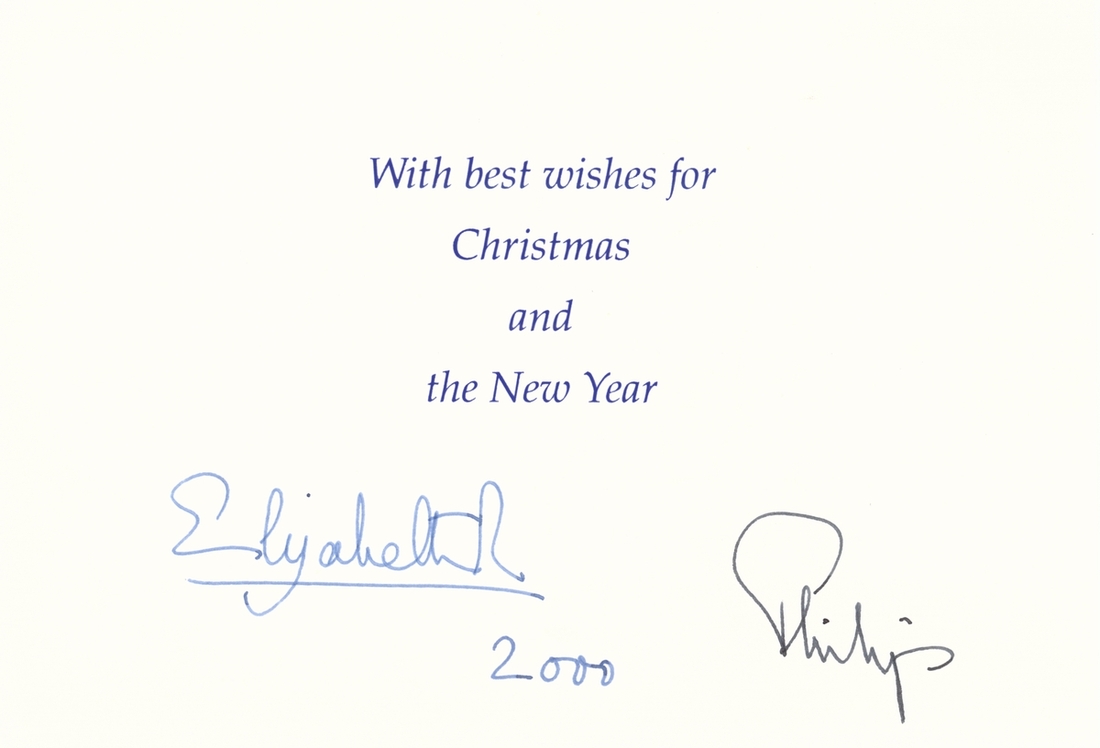 With best wishes for
Christmas
and
the New Year
Elizabeth R
2000
Philip